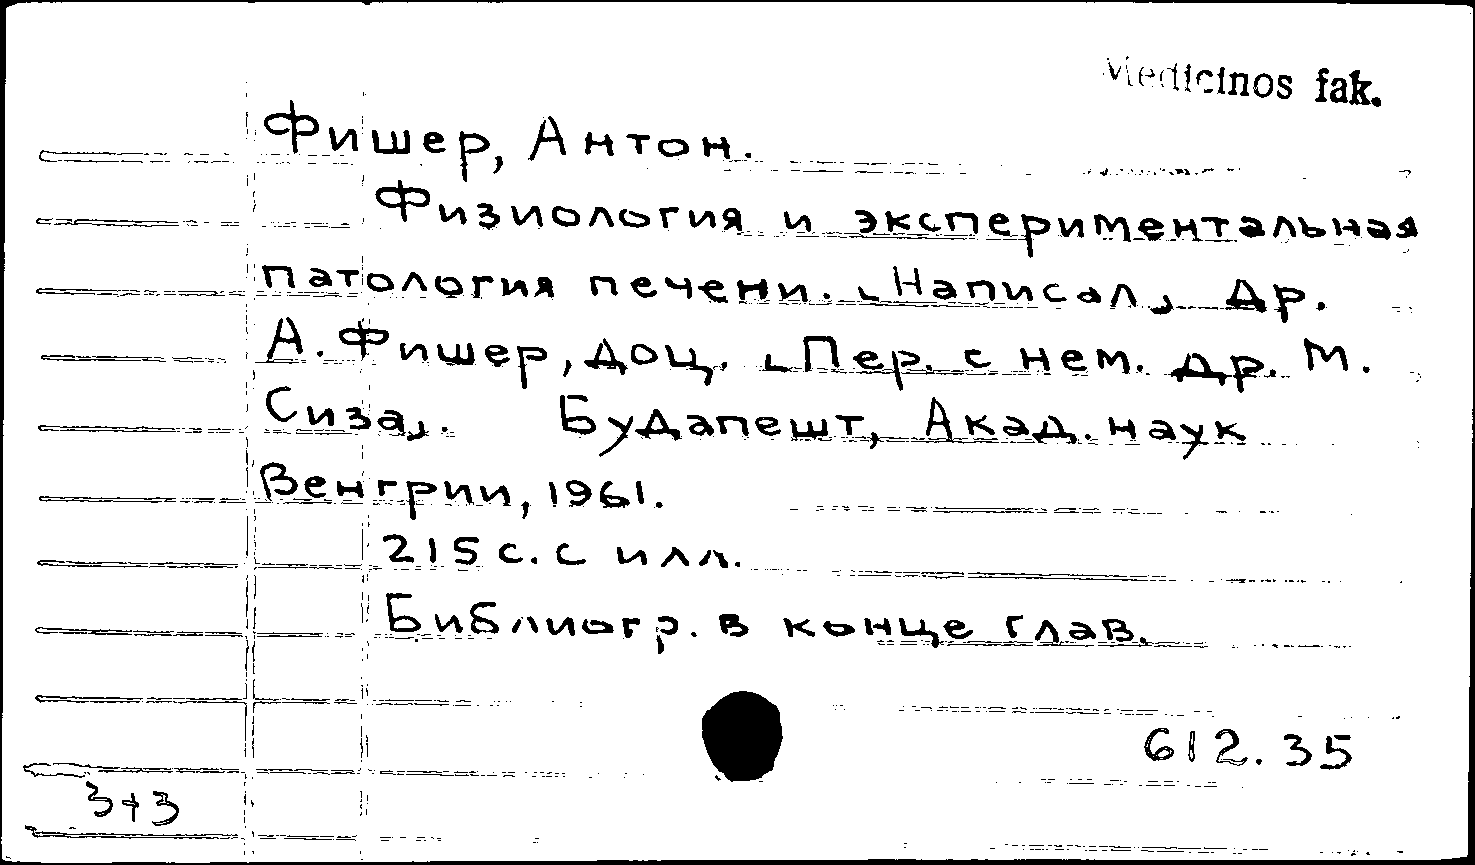 Medicinos fak.
Фишер, Антон.
Физиология и экспериментальная
патология печени. ⌞Написал⌟ Др.
А. Фишер, доц. ⌞Пер. с нем. Др. М.
Сиза⌟. Будапешт, Акад. наук
Венгрии, 1961.
215 с. с илл.
Библиогр. в конце глав.
612.35
3+3